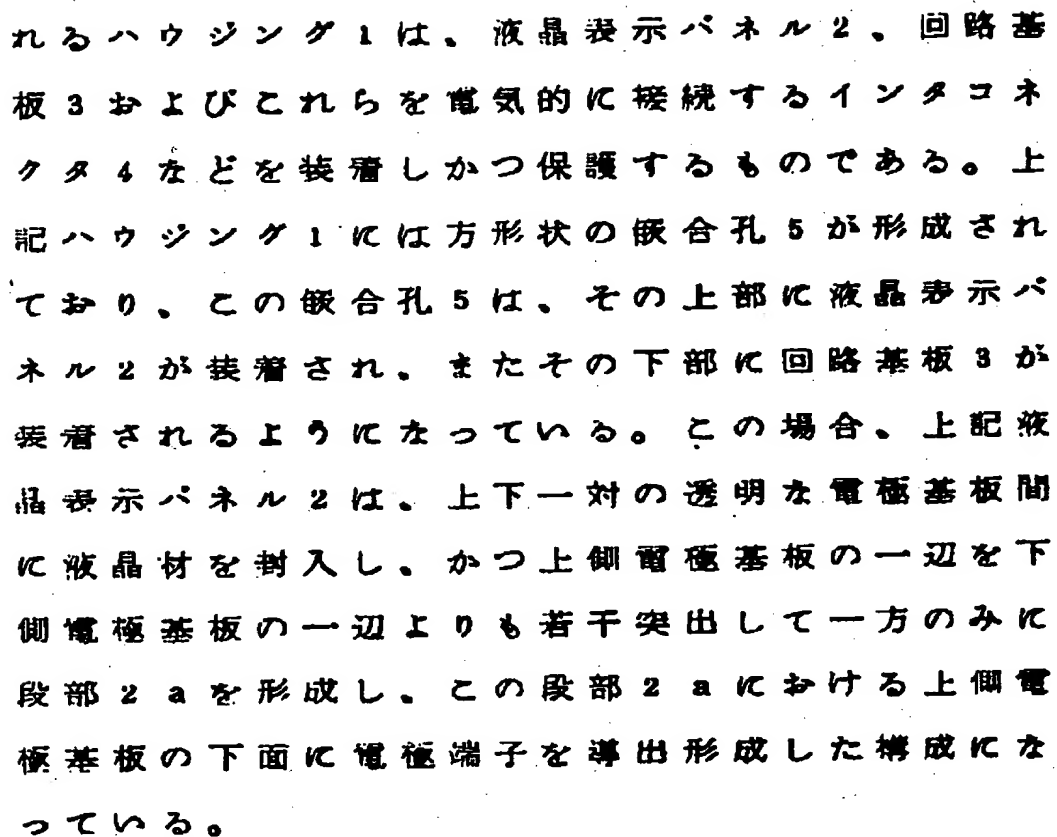 れるハウジング1は、液晶表示パネル2、回路基
板3およびこれらを電気的に接続するインタコネ
クタ4などを装着しかつ保護するものである。上
記ハウジング1には方形状の嵌合孔5が形成され
ており、この嵌合孔5は、その上部に液晶表示パ
ネル2が装着され、またその下部に回路基板3が
装着されるようになっている。この場合、上記液
晶表示パネル2は、上下一対の透明な電極基板間
に液晶材を封入し、かつ上側電極基板の一辺を下
側電極基板の一辺よりも若干突出して一方のみに
段部2aを形成し、この段部2aにおける上側電
極基板の下面に電極端子を導出形成した構成にな
っている。